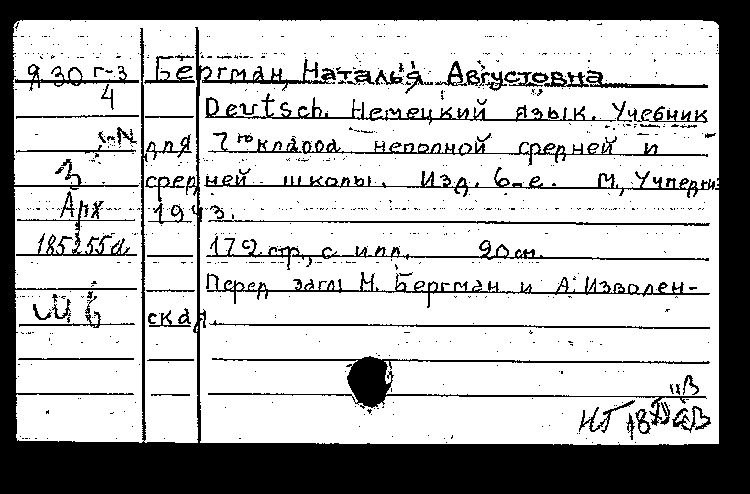 Я 30 г-3 Бергман, Наталья Августовна
4
Deutsch. Немецкий язык. Учебник
для 7го класса неполной средней и
3
средней школы. Изд. 6-е. М., Учпедгиз
Арх 1943.
185255а 172 стр., с илл. 20 см.
Перед загл: Н. Бергман и А. Изволен-
ская.